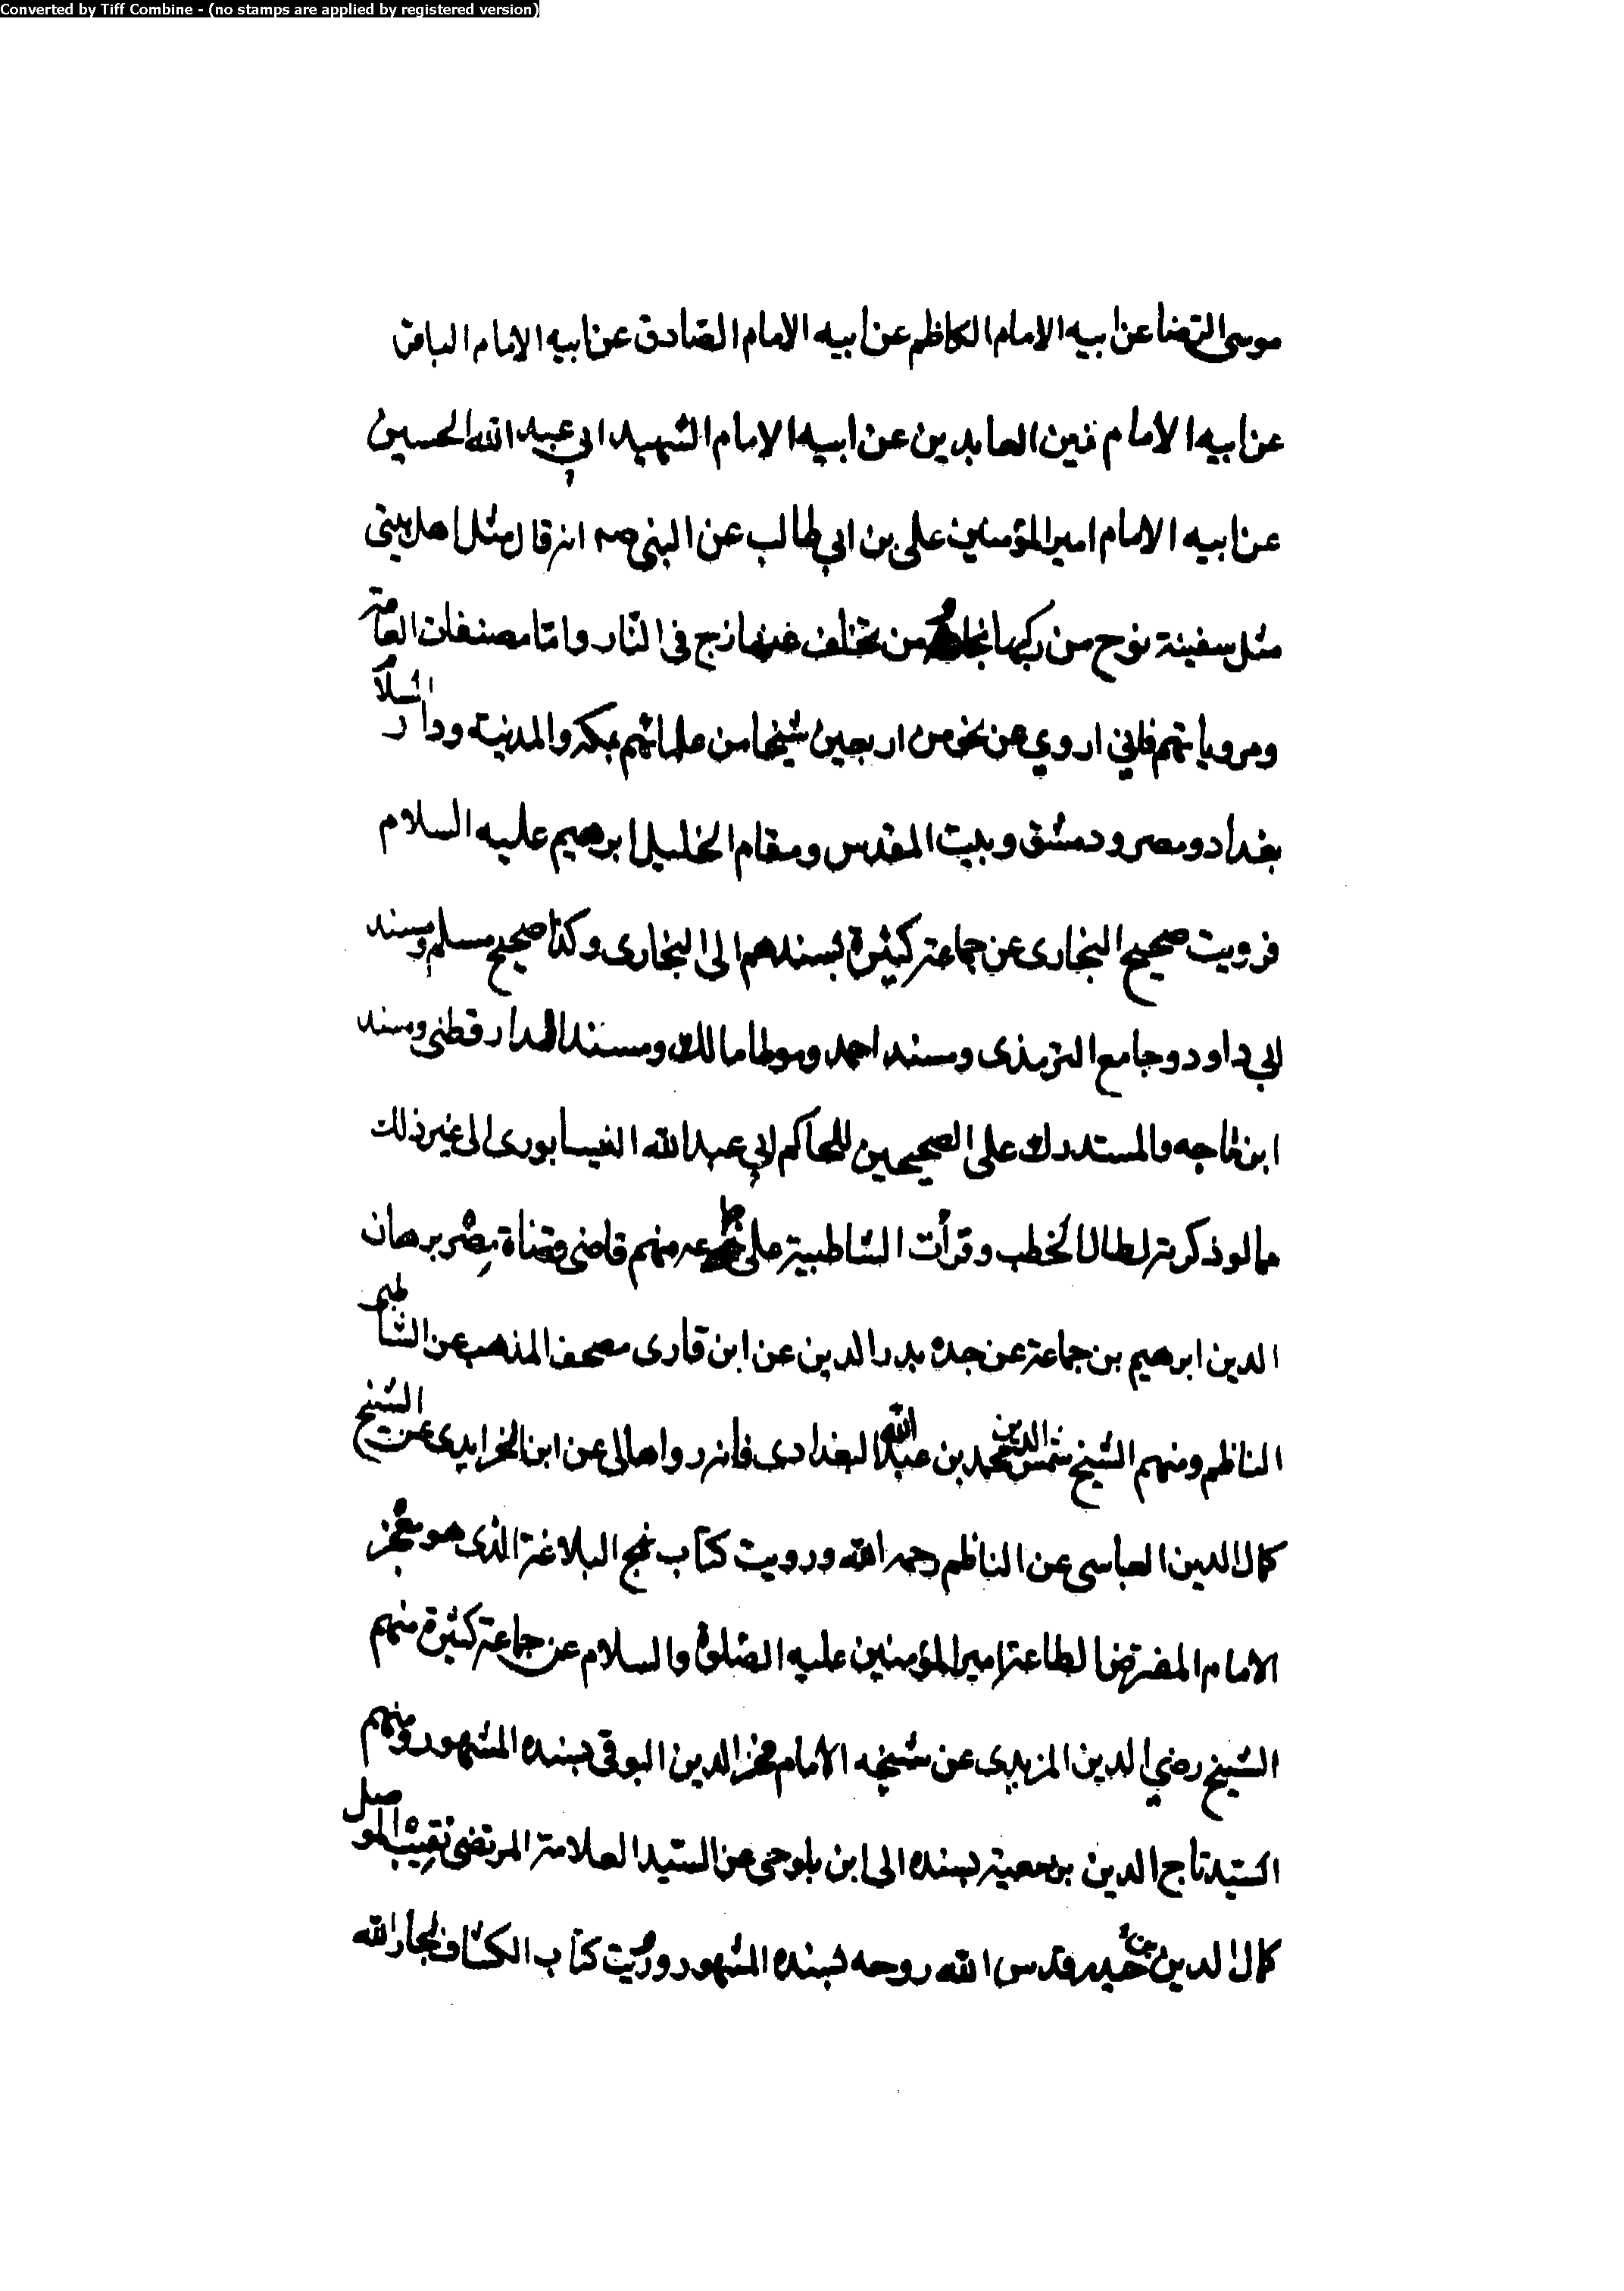 Converted by Tiff Combine - (no stamps are applied by registered version)
موسى الرضا عن ابيه الامام الكاظم عن ابيه الامام الصّادق عن ابيه الامام الباقر
عن ابيه الامام زين العابدين عن ابيه الامام الشهيد ابي عبد الله الحسين
عن ابيه الامام امير المؤمنين على بن ابي طالب عن النبى صه انه قال مثل اهل بيتى
مثل سفينة نوح من ركبها نجا ومن تخلف عنها زج فى النّار وامّا مصنفات العامّة
ومروياتهم فاني اروي عن نحو من اربعين شيخا من علمائهم بمكه والمدينة ودار السّلام
بغداد ومصر ودمشق وبيت المقدس ومقام الخليل ابرهيم عليه السلام
فرويت صحيح البخارى عن جماعة كثيرة بسندهم الى البخارى وكذا صحيح مسلم ومسند
ابي داود وجامع الترمذى ومسند احمد وموطا مالك ومسند الدارقطنى ومسند
ابن ماجه والمستدرك على الصحيحين للحاكم ابي عبد الله النيسابورى الى غير ذلك
مما لو ذكرته لطال الخطب وقرأت الشاطبية على جماعه منهم قاضى قضاة مصر برهان
الدين ابرهيم بن جماعة عن جده بدر الدين عن ابن قارى مصحف المذهب عن الشاطبى
الناظم ومنهم الشيخ شمس الدين محمد بن عبد الله البغدادى فانه رواها لى عن ابن الخرايدى عن الشيخ
كمال الدين العباسى عن الناظم رحمه الله ورويت كتاب نهج البلاغة الذى هو معجز
الامام المفترض الطاعة امير المؤمنين عليه الصّلوة والسلام عن جماعة كثيرة منهم
الشيخ رضي الدين المزيدى عن شيخه الامام فخر الدين البوقى بسنده المشهور ومنهم
السّيد تاج الدين بن معية بسنده الى ابن بلوحى عن السّيد العلامة المرتضى نقيب الموصل
كمال الدين بن حيدر قدس الله روحه بسنده المشهور ورويت كتاب الكشاف لجار الله